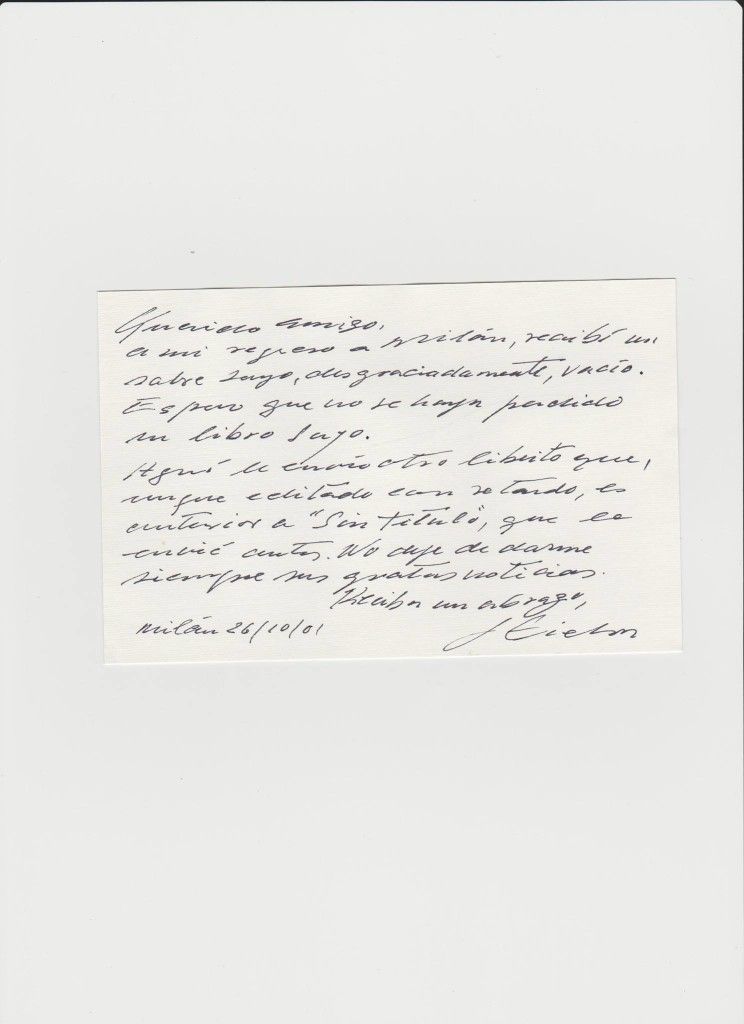 Querido amigo,
a mi regreso a Milán, recibí un
sobre suyo, desgraciadamente, vacío.
Espero que no se haya perdido
un libro suyo.
Aquí le envío otro librito que,
aunque editado con retardo, es
anterior a "Sin título", que le
envié antes. No deje de darme
siempre sus gratas noticias.
Reciba un abrazo,
Milán 26/10/01
J Eielson